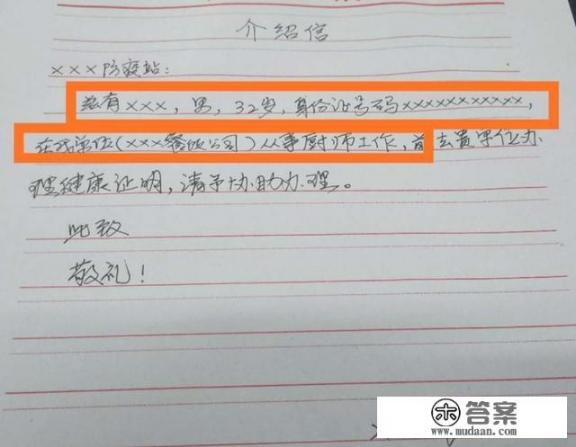 介绍信
×××防疫站:
兹有×××，男，32岁，身份证号码×××××××××××，
在我单位(×××餐饮公司)从事厨师工作，前去贵单位办
理健康证明，请予协助办理。
此致
敬礼！
答案
www.mudaan.com